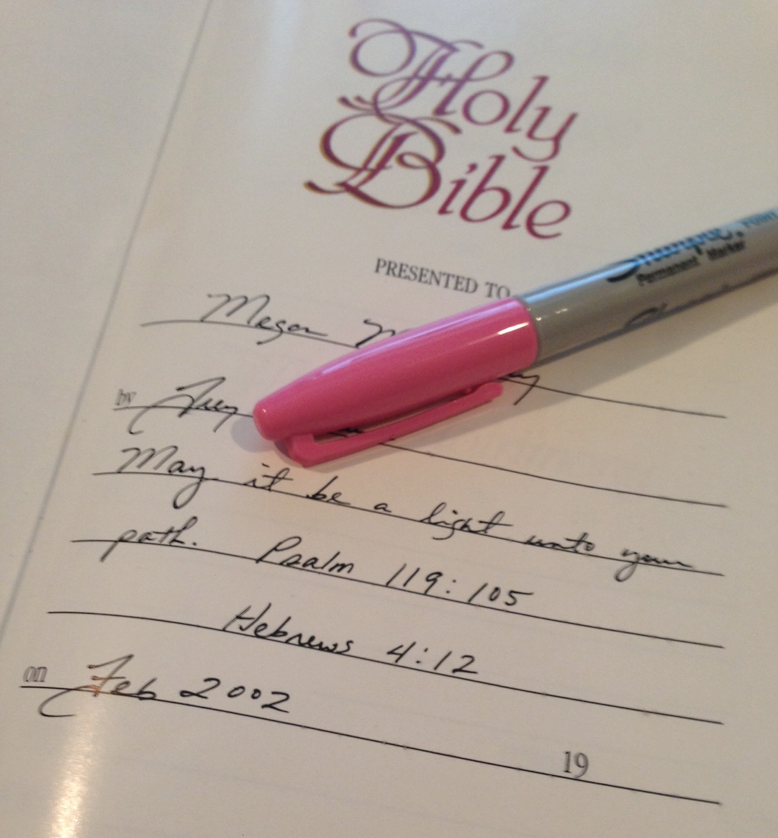 Holy
Bible
PRESENTED TO
Megan
by
May it be a light unto your
path. Psalm 119:105
Hebrews 4:12
on Feb 2002
19
Sharpie
Permanent Marker